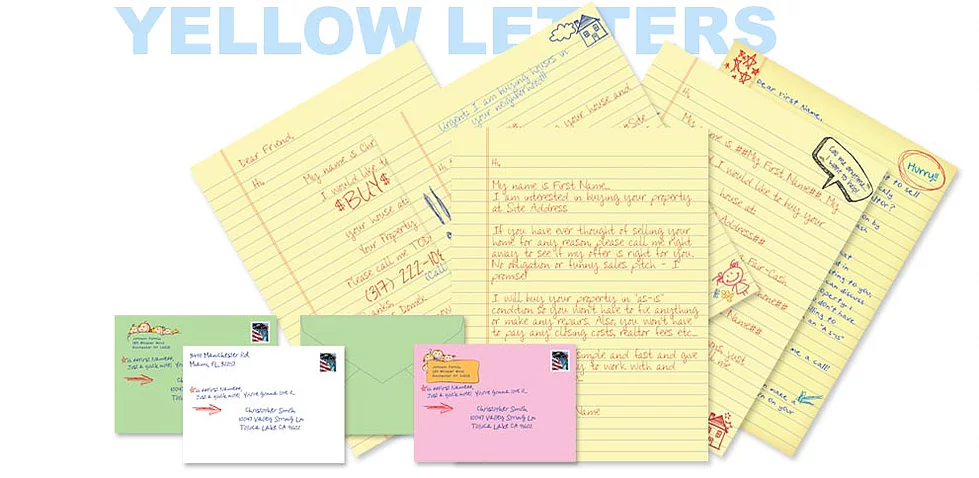 YELLOW LETTERS
Dear Friend,
Hi,
My name is Chr
I would like to
$BUY$
your house at:
Your Property
Please call me TOD
(317) 222-10
(Call
Thanks,
Urgent! I am buying houses in
your neighborhood!!
your house and
Hi,
My name is First Name.
I am interested in buying your property
at Site Address
If you have ever thought of selling your
home for any reason please call me right
away to see if my offer is right for you.
No obligation or funny sales pitch - I
promise!
I will buy your property in "as-is"
condition so you won't have to fix anything
or make any repairs. Also, you won't have
to pay any closing costs, realtor fees etc...
simple and fast and give
to work with and
Name
Hi,
My name is ##My First Name##. My
I would like to buy your
house at:
Address##
Fair-Cash
Name##
Dear First Name,
Call me anytime...
I want to help!
Hurry!!
to sell
on by
cash
in
ating to you,
can discuss
operty I
don't have
lling to
an "as-is"
me a call!
make a
on your
Johnson Family
Hi First Name,
Just a quick note! You're gonna
3698 Manchester Rd
Miami, FL
Hi First Name,
Just a quick note! You're gonna love it...
Christopher Smith
10047 Valley Spring Ln
Toluca Lake CA 91602
Johnson Family
Hi First Name,
Just a quick note! You're gonna love it...
Christopher Smith
10047 Valley Spring Ln
Toluca Lake CA 91602